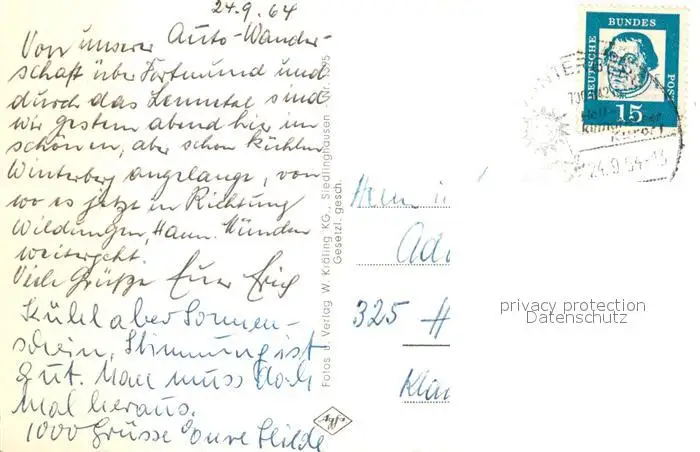 24.9.64
Von unserer Auto-Wander-
schaft über Dortmund und
durch das Lennetal sind
wir gestern abend hier im
schönen, aber schon kühlen
Winterberg angelangt, von
wo es jetzt in Richtung
Wildungen, Hann. Münden
weitergeht.
Viele Grüße Euer Erich
Kühl aber Sonnen-
schein, Stimmung ist
gut. Man muss doch
mal heraus.
1000 Grüsse Eure Hilde
Fotos u. Verlag W. Kräling KG., Siedlinghausen
Gesetzl. gesch.
Agfa
DEUTSCHE
BUNDES
POST
15
WINTERB
24.9.64-13
325 H
Kla
privacy protection
Datenschutz